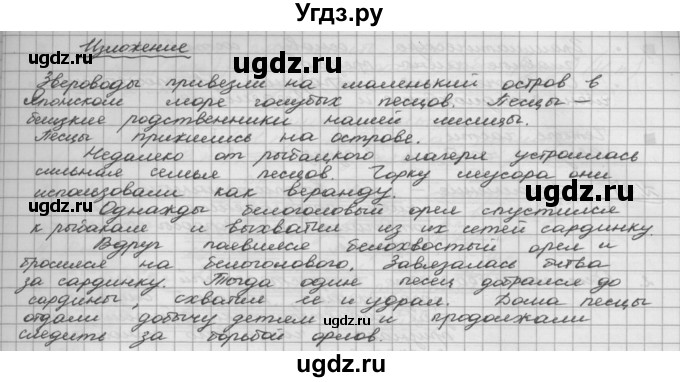 Угдз.ру
Изложение
ugdz.ru
ugdz.ru
Звероводы привезли на маленький остров в
Японском море голубых песцов. Песцы –
близкие родственники нашей лисицы.
ugdz.ru
Песцы прижились на острове.
Недалеко от рыбацкого лагеря устроилась
сильная семья песцов. Горку мусора они
использовали как веранду.
ugdz.ru
ugdz.ru
Однажды белоголовый орел спустился
к рыбакам и выхватил из их сетей сардинку.
ugdz.ru
Вдруг появился белохвостый орел и
бросился на белоголового. Завязалась битва
за сардинку. Тогда один песец добрался до
ugdz.ru
сардины, схватил ее и удрал. Дома песцы
отдали добычу детям и продолжали
ugdz.ru
ugdz.ru
следить за борьбой орлов.
ugdz.ru